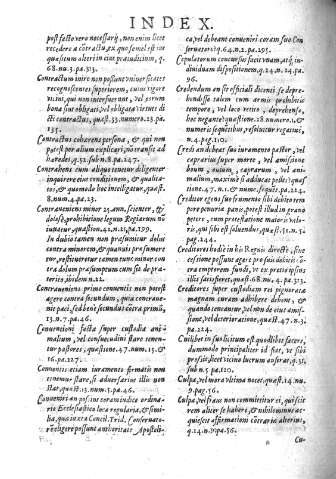 INDEX.
post facto vero necessarij, non enim licet
recedere a contractu, ex quo semel est ine
quasitum alteri in eius præiudicium, q.
68. nu. 3. pa. 313.
Contractum inire non possunt vniuersitates
recognoscentes superiorem, cuius vigore
vicini, qui non interfuerunt, vel eorum
bona sint obligati, vel obligata virtute di
cti contractus, quæst. 33. numero. 23. pa.
135.
Contractus coherens personæ, & qui non
potest per alium explicari, no transit ad
hæredes q. 32. sub n. 8. pa. 247.
Contrahens cum aliquo tenetur diligenter
inquirere eius conditionem, & qualita-
tes, & quomodo hoc intelligatur, quæst.
8. num. 4. pa. 23.
Contrahens minor 25. ann. scienter, &
dolose, prohibitione legum Regiarum no
iuuatur, quæstion. 42. n. 25. pa. 199.
In dubio tamen non præsumitur dolus
contra minorem, & quando præsumere
tur, restitueretur tamen tunc minor con
tra dolum præsumptum cum sit de præ-
terito, ibidem n. 22.
Contraueniens primæ conuentio non potest
agere contra secundum, quia contraue-
nit pacti, sed bene secundus contra primū,
13. n. 7. pa. 46.
Conuentioni factæ super custodia ani-
malium, vel consuetudini stare tenen-
tur pastores, quæstione. 47. num. 15. &
16. pa. 127.
Conuentus etiam iuramento firmatis non
tenemur stare, si aduersarius illis non
stat, quæst. 13. num. 1. pa. 46.
Conueniri an possint coram iudice ordina-
rio Ecclesiastico loca regularia, & simi-
lia, quia iuxta Concil. Trid. Conseruato-
res eligere possunt autoritate Apostoli-
ca, vel debeant conueniri coram suo Con
seruatore. q. 64. n. 2. pa. 295.
Copulatorum concursus facit vnum, atq; in-
diuiduam dispositionem, q. 24. n. 24. pa.
96.
Credendum an sit officiali dicenti se depre-
hendisse talem cum armis prohibitis
tempore, vel loco vetito, deprehenso,
hoc negante quæstione. 28. numero. 1. &
numeris sequētibus, resoluitur negatiuè,
n. 4. pag. 110.
Credi an debeat suo iuramento pastor, vel
caprarius super morte, vel amissione
bouum, ouium, caprarum, vel ani-
malium, maxime si adducat pelles? quæst
tione. 47. n. 1. & nume. sequēs. pa. 224.
Creditor egens suo frumento sibi debito tem
pore penuriæ panis, potest illud in grani
petere, cum præstatione maioris valo-
ris, qui sibi est soluendus, quæst. 51. n. 3.
pag. 244.
Creditores, hodie in his Regnis directe, sine
cessione possunt agere pro suis debitis cō-
tra emptorem fundi, vt ex pretio ipsius
illis satisfaciat, quæst. 68. nu. 4. pa. 313.
Creditores super custodiam rei pignoratæ
magnam curam adhibere debent, &
quando tenebuntur, vel nō de eius mor
te, vel deterioratione, quæst. 47. n. 3.
pa. 224.
Cuilibet in suo licitum est quod libet facere,
dummodo principaliter id fiat, vt sibi
prosit, licet vicino lucrum auferat, q. 33.
sub. n. 5. pa. 120.
Culpa, vel mora vltima nocet, quæst. 14. nu.
9. pag. 56.
Culpa, vel fraus non committitur ei, qui sci-
rem aliter se habere, & nihilominus ac-
quiescit affirmationi contrariæ alterius,
q. 14. n. 9. pa. 56.
Cu-